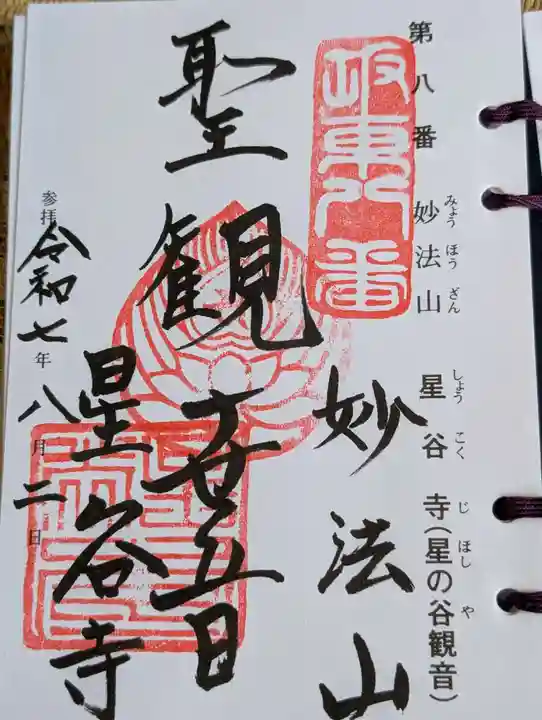 第八番 妙法山 星谷寺(星の谷観音)
みょうほうざん しょうこくじ ほし や
坂東八番
妙法山
聖観世音
星谷寺
参拝 令和七年八月二日